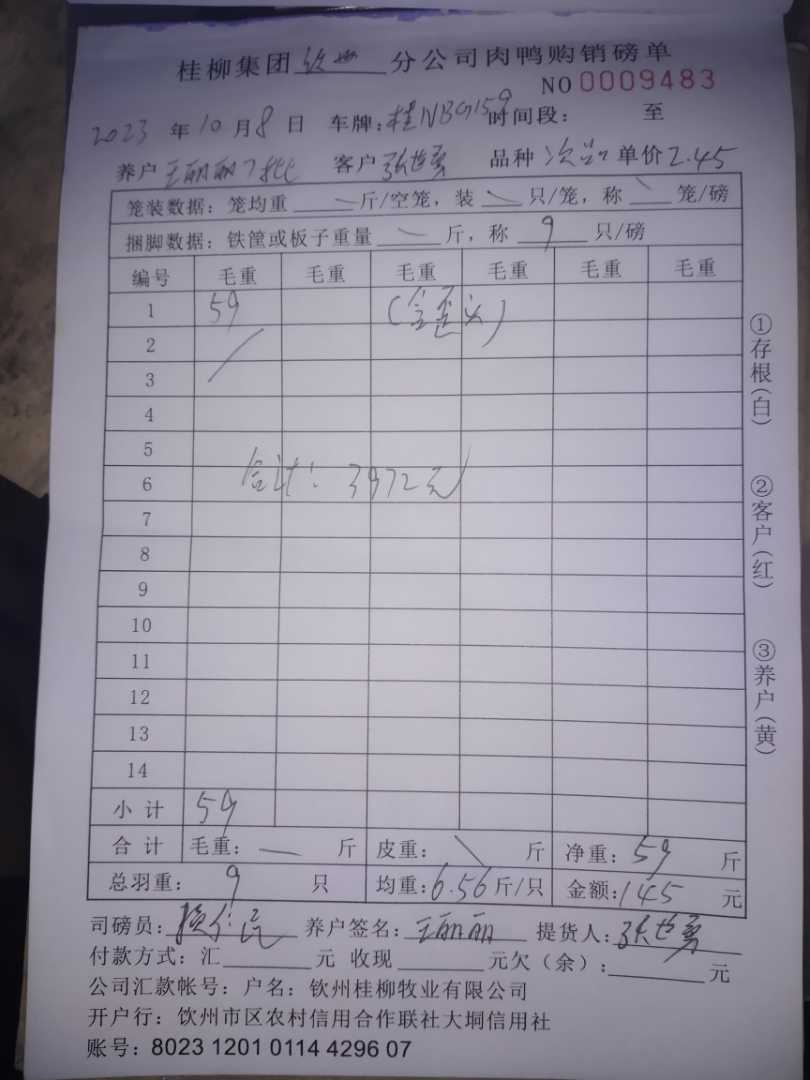 桂柳集团 钦州 分公司肉鸭购销磅单
NO 0009483
2023 年 10 月 8 日 车牌: 桂NBG159 时间段: 至
养户 王丽丽7批 客户 张世勇 品种 次品 单价 2.45
笼装数据: 笼均重 斤/空笼, 装 只/笼, 称 笼/磅
捆脚数据: 铁筐或板子重量 斤, 称 9 只/磅
编号 毛重 毛重 毛重 毛重 毛重 毛重
1 59 (含歪头)
2
3
4
5
6 合计: 3972元
7
8
9
10
11
12
13
14
小计 59
合计 毛重: 斤 皮重: 斤 净重: 59 斤
总羽重: 9 只 均重: 6.56 斤/只 金额: 145 元
司磅员: 养户签名: 王丽丽 提货人: 张世勇
付款方式: 汇 元 收现 元欠(余): 元
公司汇款帐号: 户名: 钦州桂柳牧业有限公司
开户行: 钦州市区农村信用合作联社大垌信用社
账号: 8023 1201 0114 4296 07
①存根(白)
②客户(红)
③养户(黄)